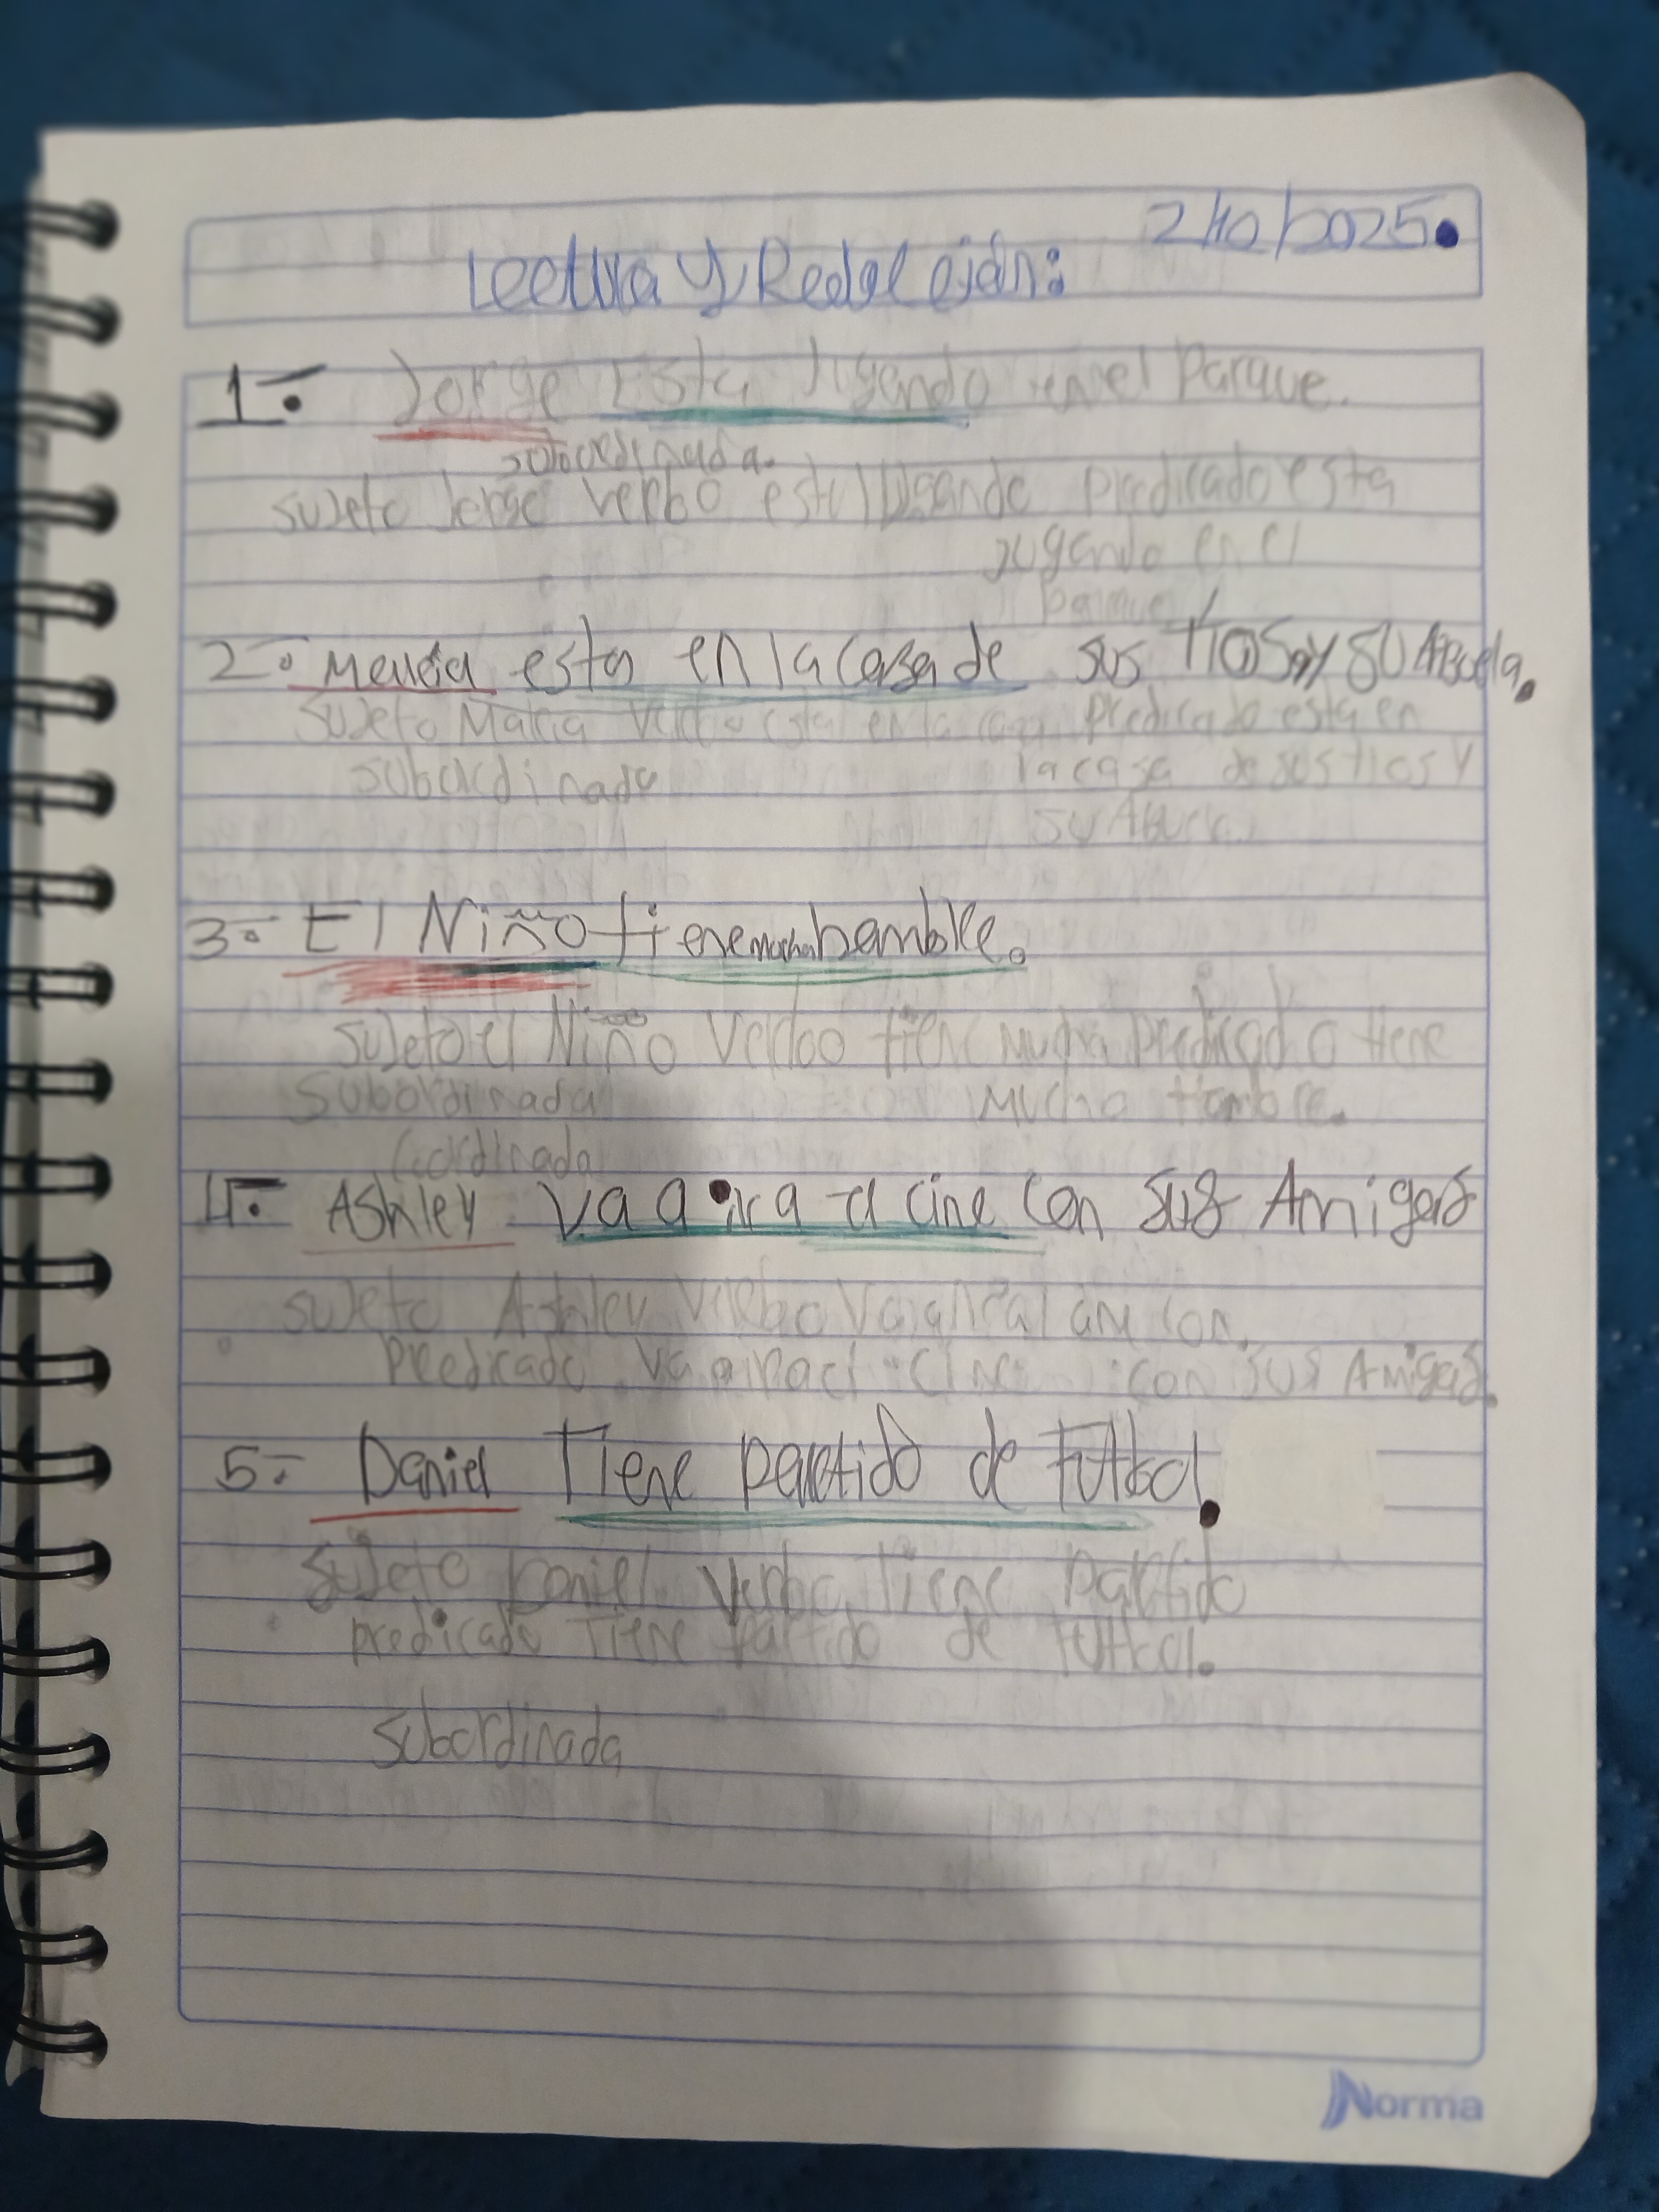 2/10/2025.
Lectura y Redal ejón:
1- Jorge Esta Jugando en el Parque.
subordinada.
sujeto Jorge verbo esta Jugando predicado esta
jugando en el
parque
2- María esta en la casa de sus Tíos y su Abuela.
sujeto María verbo esta en la casa predicado esta en
subordinada la casa de sus tíos y
su Abuela
3- El Niño tiene mucha hambre.
sujeto el Niño verbo tiene mucha predicado tiene
subordinada mucho hambre.
Cordinada
4- Ashley va a ir a el cine con sus Amigas
sujeto Ashley verbo va a ir al cine con.
Predicado va a ir a el cine con sus Amigas.
5- Daniel Tiene partido de Futbol.
sujeto Daniel verbo Tiene partido
predicado Tiene partido de Futbol.
subordinada
Norma